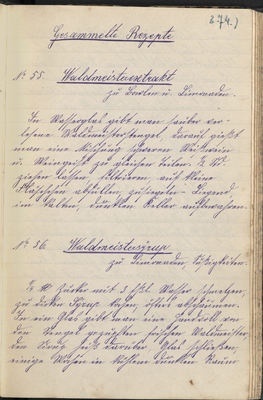 274.)
Gesammelte Rezepte
No 55. Waldmeisterextrakt
zu Bowlen u. Limonaden.
In Wasserglas gibt man sauber ver-
lesene Waldmeisterstengel, darauf gießt
man eine Mischung schweren Weißwein
u. Weingeist zu gleichen Teilen.
ziehen lassen, filtrieren, auf kleine
Fläschchen abfüllen, zusiegeln, liegend
im kalten, dunklen Keller aufbewahren.
No 56. Waldmeistersirup
zu Limonaden, Süßigkeiten.
Zucker mit 3 Wasser schmelzen,
zu dickem Sirup kochen, öfters abschäumen.
In ein Glas gibt man eine Handvoll von
den Stengel gezupften frischen Waldmeister,
den Sirup heiß darüber, Glas schließen,
einige Wochen in kühlem dunklen Raum